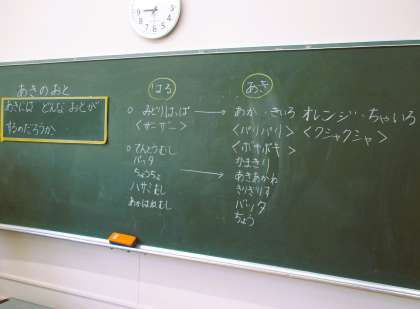 あきのおと
あきには どんな おとが
するのだろうか
はる
○ みどりはっぱ
<サーサー>
○ てんとうむし
バッタ
ちょうちょ
ハサミむし
あかはねむし
あき
あか・きいろ オレンジ・ちゃいろ
<パリパリ> <クシャクシャ>
<ボサボサ>
かまきり
あきあかね
きりぎりす
バッタ
ちょう